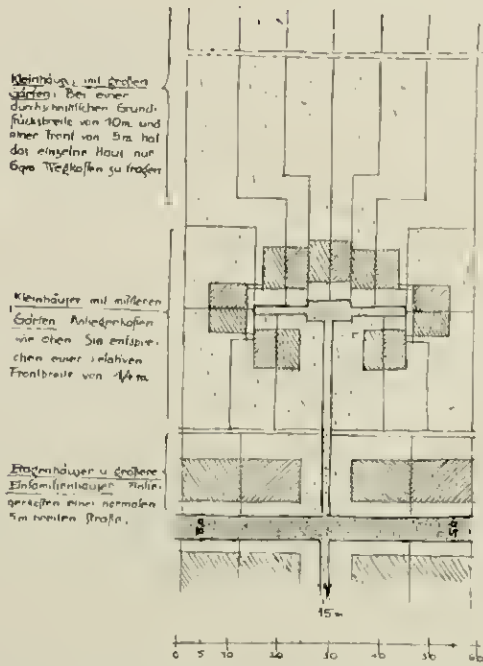 Kleinhäuser mit großen
Gärten. Bei einer
durchschnittlichen Grund-
stücksbreite von 10m und
einer Front von 5m hat
das einzelne Haus nur
6qm Wegkosten zu tragen
Kleinhäuser mit mittleren
Gärten Anliegerkosten
wie oben Sie entspre-
chen einer relativen
Frontbreite von m
Etagenhäuser u größere
Einfamilienhäuser Anlie-
gerkosten einer normalen
5m breiten Straße.
15m
0 5 10 20 30 40 50 60